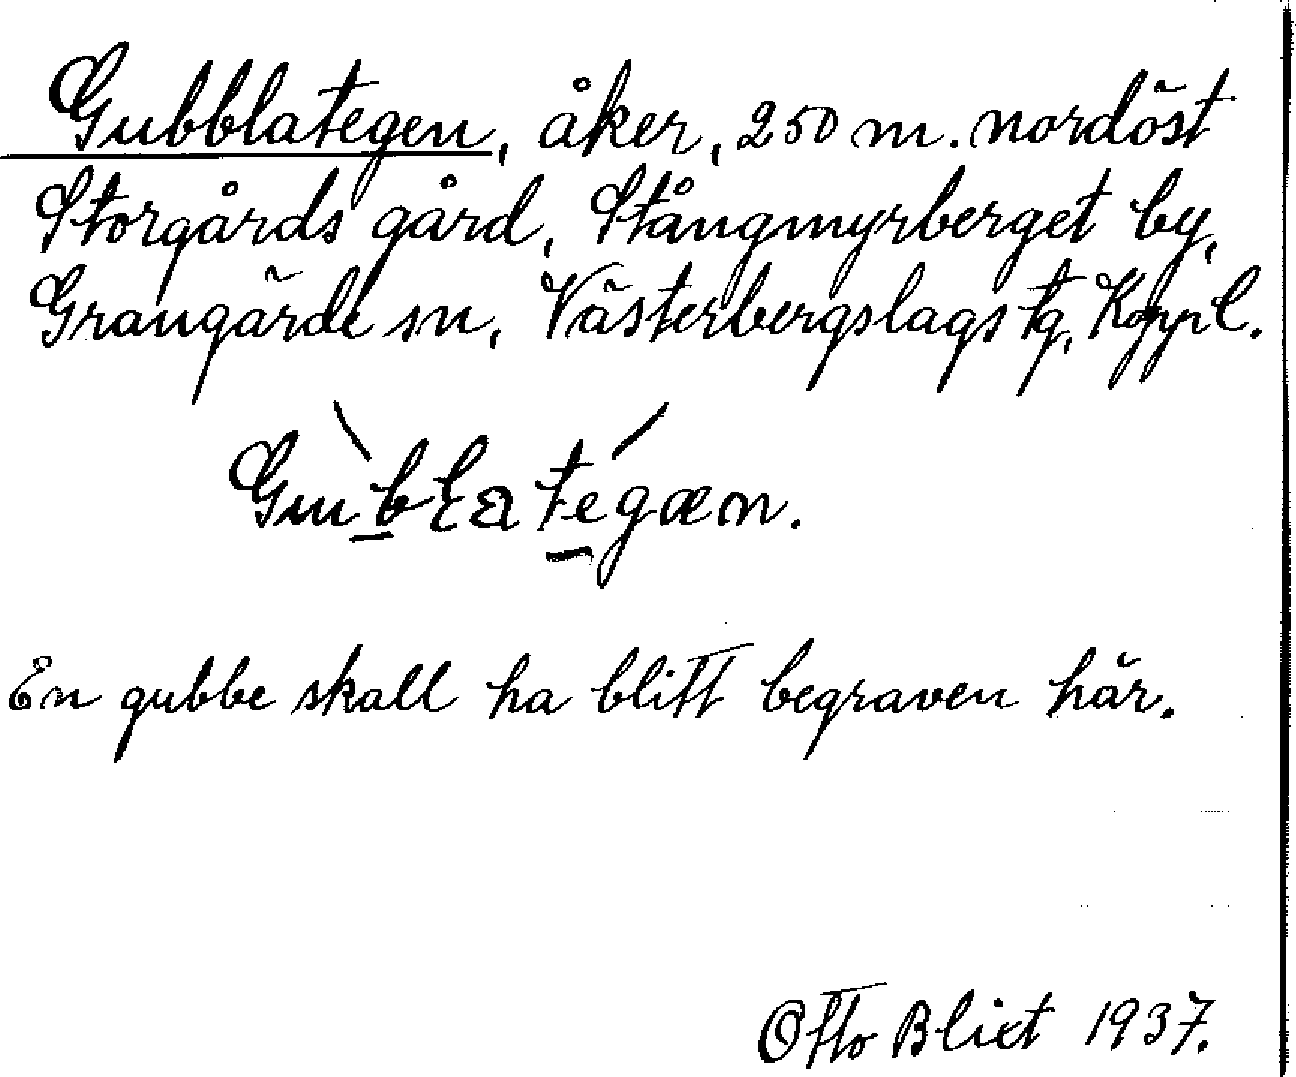 Gubblategen, åker, 250 m. nordöst
Storgårds gård, Stångmyrberget by,
Grangärde sn, Västerbergslags tg, Koppl.
Gubblategæn.
En gubbe skall ha blitt begraven här.
Otto Blixt 1937.